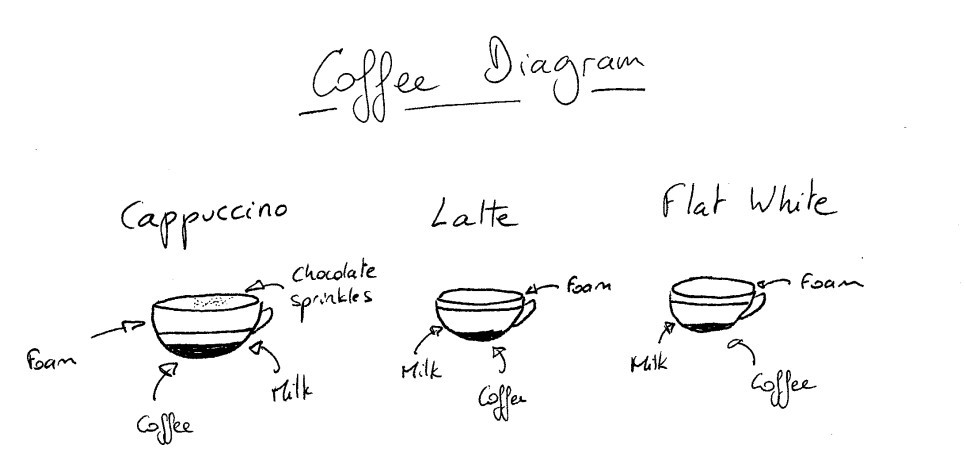 Coffee Diagram
Cappuccino
Latte
Flat White
Chocolate
sprinkles
Foam
Coffee
Milk
Foam
Milk
Coffee
Foam
Milk
Coffee